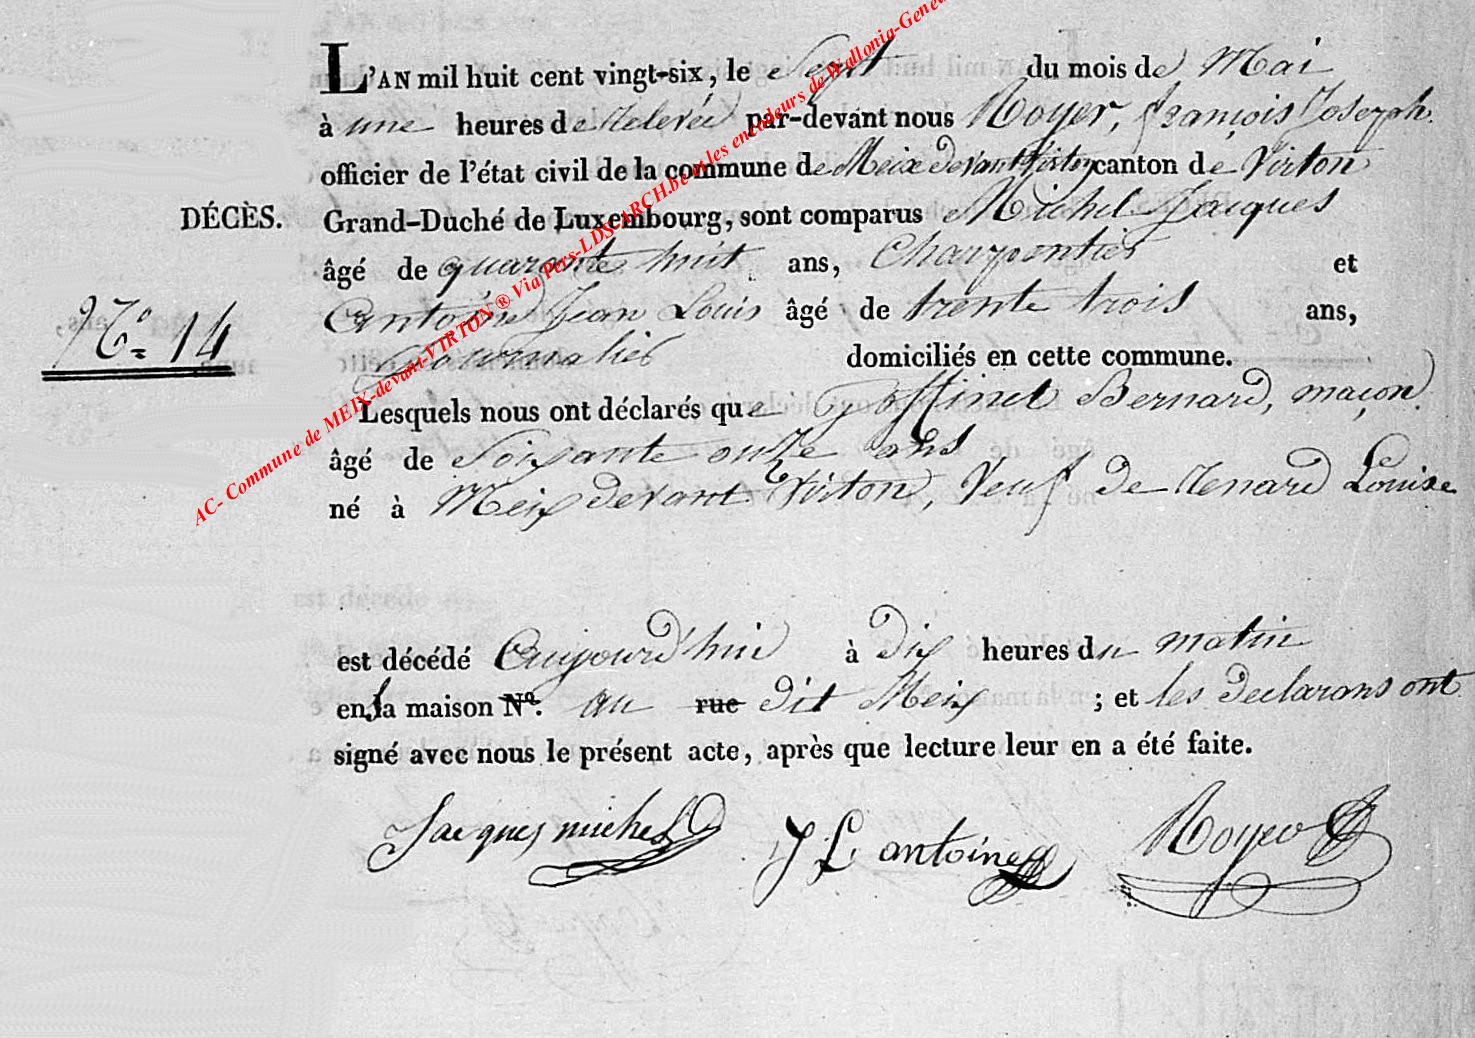 L'AN mil huit cent vingt-six, le Sept du mois de Mai
à une heures de relevée par-devant nous Royer, françois Joseph.
officier de l'état civil de la commune de Meix devant Virton canton de Virton
DÉCÈS.
Grand-Duché de Luxembourg, sont comparus Michel Jacques
âgé de quarante huit ans, Charpentier et
N.o 14
Antoine Jean Louis âgé de trente trois ans,
Journalier domiciliés en cette commune.
Lesquels nous ont déclarés que Goffinet Bernard, maçon
âgé de Soixante onze ans
né à Meix devant Virton, Veuf de Renard Louise
est décédé Aujourd'hui à dix heures du matin
en la maison No. au rue dit Meix ; et les declarans ont
signé avec nous le présent acte, après que lecture leur en a été faite.
Jacques michel J L antoine Royer
AC- Commune de MEIX-devant-VIRTON ® Via Pers-LDS-ARCH.be et les encodeurs de Wallonia-Gene